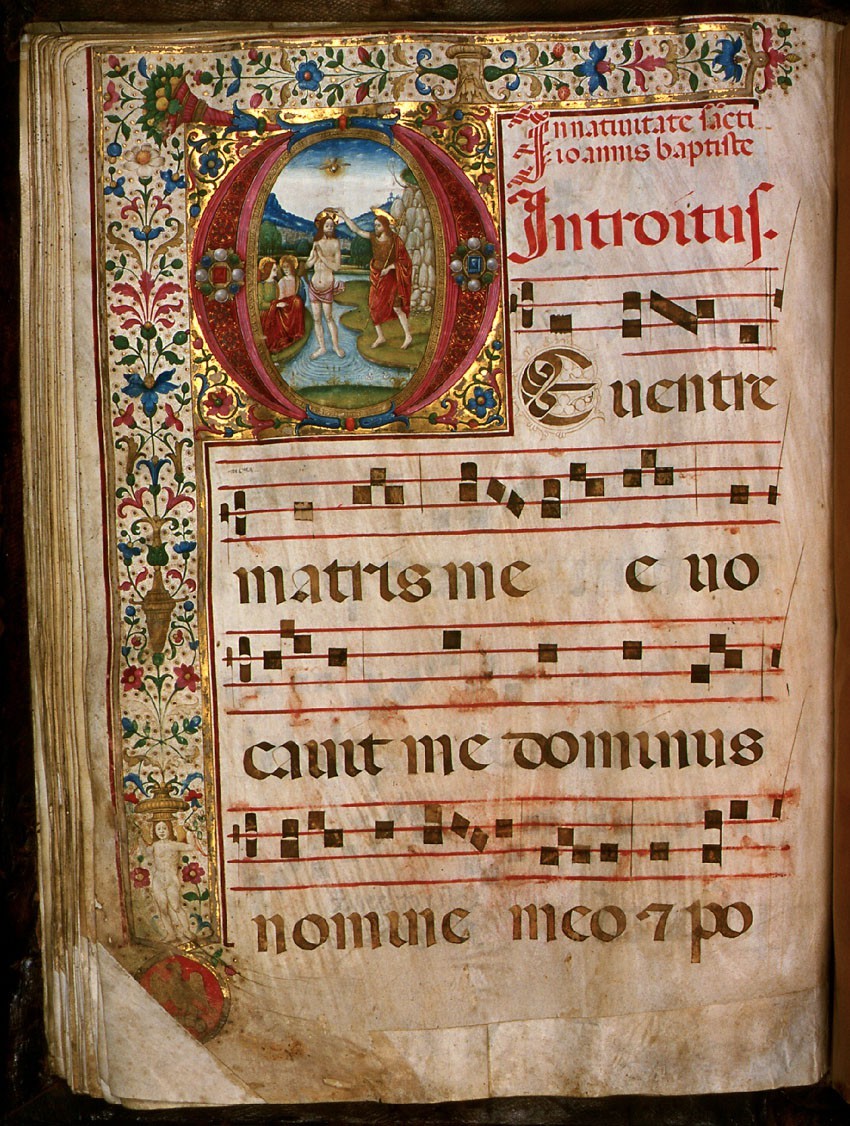 In natiuitate sãcti
ioannis baptiste
Introitus.
De uentre
matris me e uo
cauit me dominus
nomine meo ⁊ po